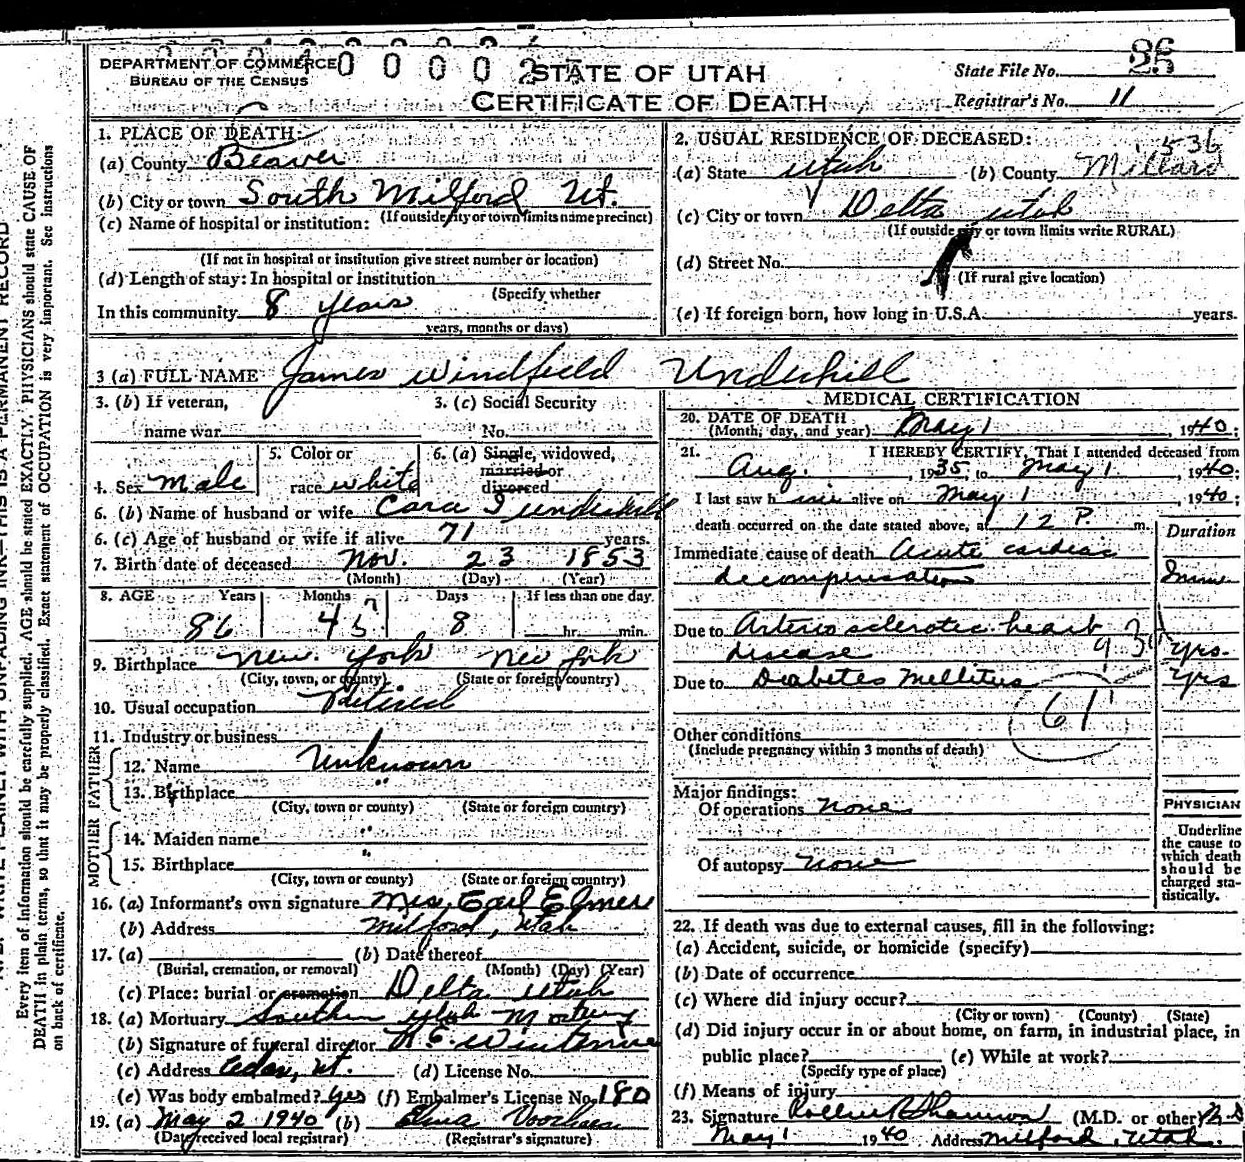 DEPARTMENT OF COMMERCE
BUREAU OF THE CENSUS
0 0 0 0 2
STATE OF UTAH
CERTIFICATE OF DEATH
State File No. 26
Registrar's No. 11
Every item of information should be carefully supplied. AGE should be stated EXACTLY. PHYSICIANS should state CAUSE OF
DEATH in plain terms, so that it may be properly classified. Exact statement of OCCUPATION is very important. See instructions
on back of certificate.
1. PLACE OF DEATH:
(a) County Beaver
(b) City or town South Milford Ut.
(If outside city or town limits name precinct)
(c) Name of hospital or institution:
(If not in hospital or institution give street number or location)
(d) Length of stay: In hospital or institution
(Specify whether
In this community 8 years
years, months or days)
2. USUAL RESIDENCE OF DECEASED:
536
(a) State Utah (b) County Millard
(c) City or town Delta Utah
(If outside city or town limits write RURAL)
(d) Street No.
(If rural give location)
(e) If foreign born, how long in U.S.A. years.
3 (a) FULL NAME James Windfield Underhill
3. (b) If veteran, 3. (c) Social Security
name war No.
4. Sex Male 5. Color or race white 6. (a) Single, widowed, married or divorced
6. (b) Name of husband or wife Cora I Underhill
6. (c) Age of husband or wife if alive 71 years.
7. Birth date of deceased Nov. 23 1853
(Month) (Day) (Year)
8. AGE Years Months Days If less than one day
86 4 5 8 hr. min.
9. Birthplace New York New York
(City, town, or county) (State or foreign country)
10. Usual occupation Retired
11. Industry or business
FATHER
12. Name Unknown
13. Birthplace "
(City, town or county) (State or foreign country)
MOTHER
14. Maiden name "
15. Birthplace "
(City, town or county) (State or foreign country)
16. (a) Informant's own signature Mrs. Earl Elmer
(b) Address Milford, Utah
17. (a) (b) Date thereof
(Burial, cremation, or removal) (Month) (Day) (Year)
(c) Place: burial or cremation Delta Utah
18. (a) Mortuary Southern Utah Mortuary
(b) Signature of funeral director
(c) Address Cedar, Ut. (d) License No.
(e) Was body embalmed? yes (f) Embalmer's License No. 180
19. (a) May 2 1940 (b) Elma
(Day received local registrar) (Registrar's signature)
MEDICAL CERTIFICATION
20. DATE OF DEATH
(Month, day, and year) May 1, 1940;
21. I HEREBY CERTIFY, That I attended deceased from
Aug. , 1935, to May 1 , 1940;
I last saw him alive on May 1 , 1940;
death occurred on the date stated above, at 12 P. m.
Duration
Immediate cause of death Acute cardiac
decompensation
Due to Arterio sclerotic heart
disease 93 yrs.
Due to Diabetes Mellitus yrs
61
Other conditions
(Include pregnancy within 3 months of death)
Major findings:
Of operations none
Of autopsy none
PHYSICIAN
Underline
the cause to
which death
should be
charged sta-
tistically.
22. If death was due to external causes, fill in the following:
(a) Accident, suicide, or homicide (specify)
(b) Date of occurrence
(c) Where did injury occur?
(City or town) (County) (State)
(d) Did injury occur in or about home, on farm, in industrial place, in
public place? (e) While at work?
(Specify type of place)
(f) Means of injury
23. Signature (M.D. or other) M.D
May 1 1940 Address Milford, Utah.